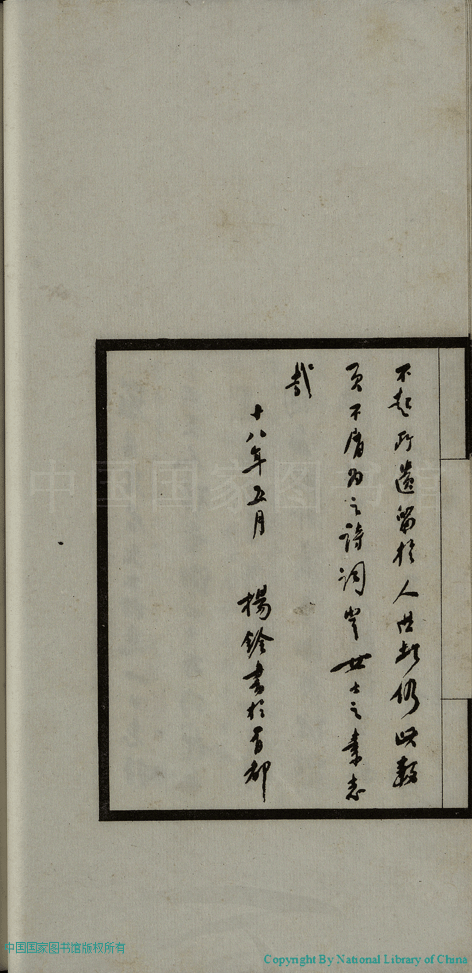 不起所遺留於人世者僅此數
頁不屑為之詩詞豈女士之素志
哉
十八年五月 楊銓書於首都
中国国家图书馆
中国国家图书馆版权所有
Copyright By National Library of China